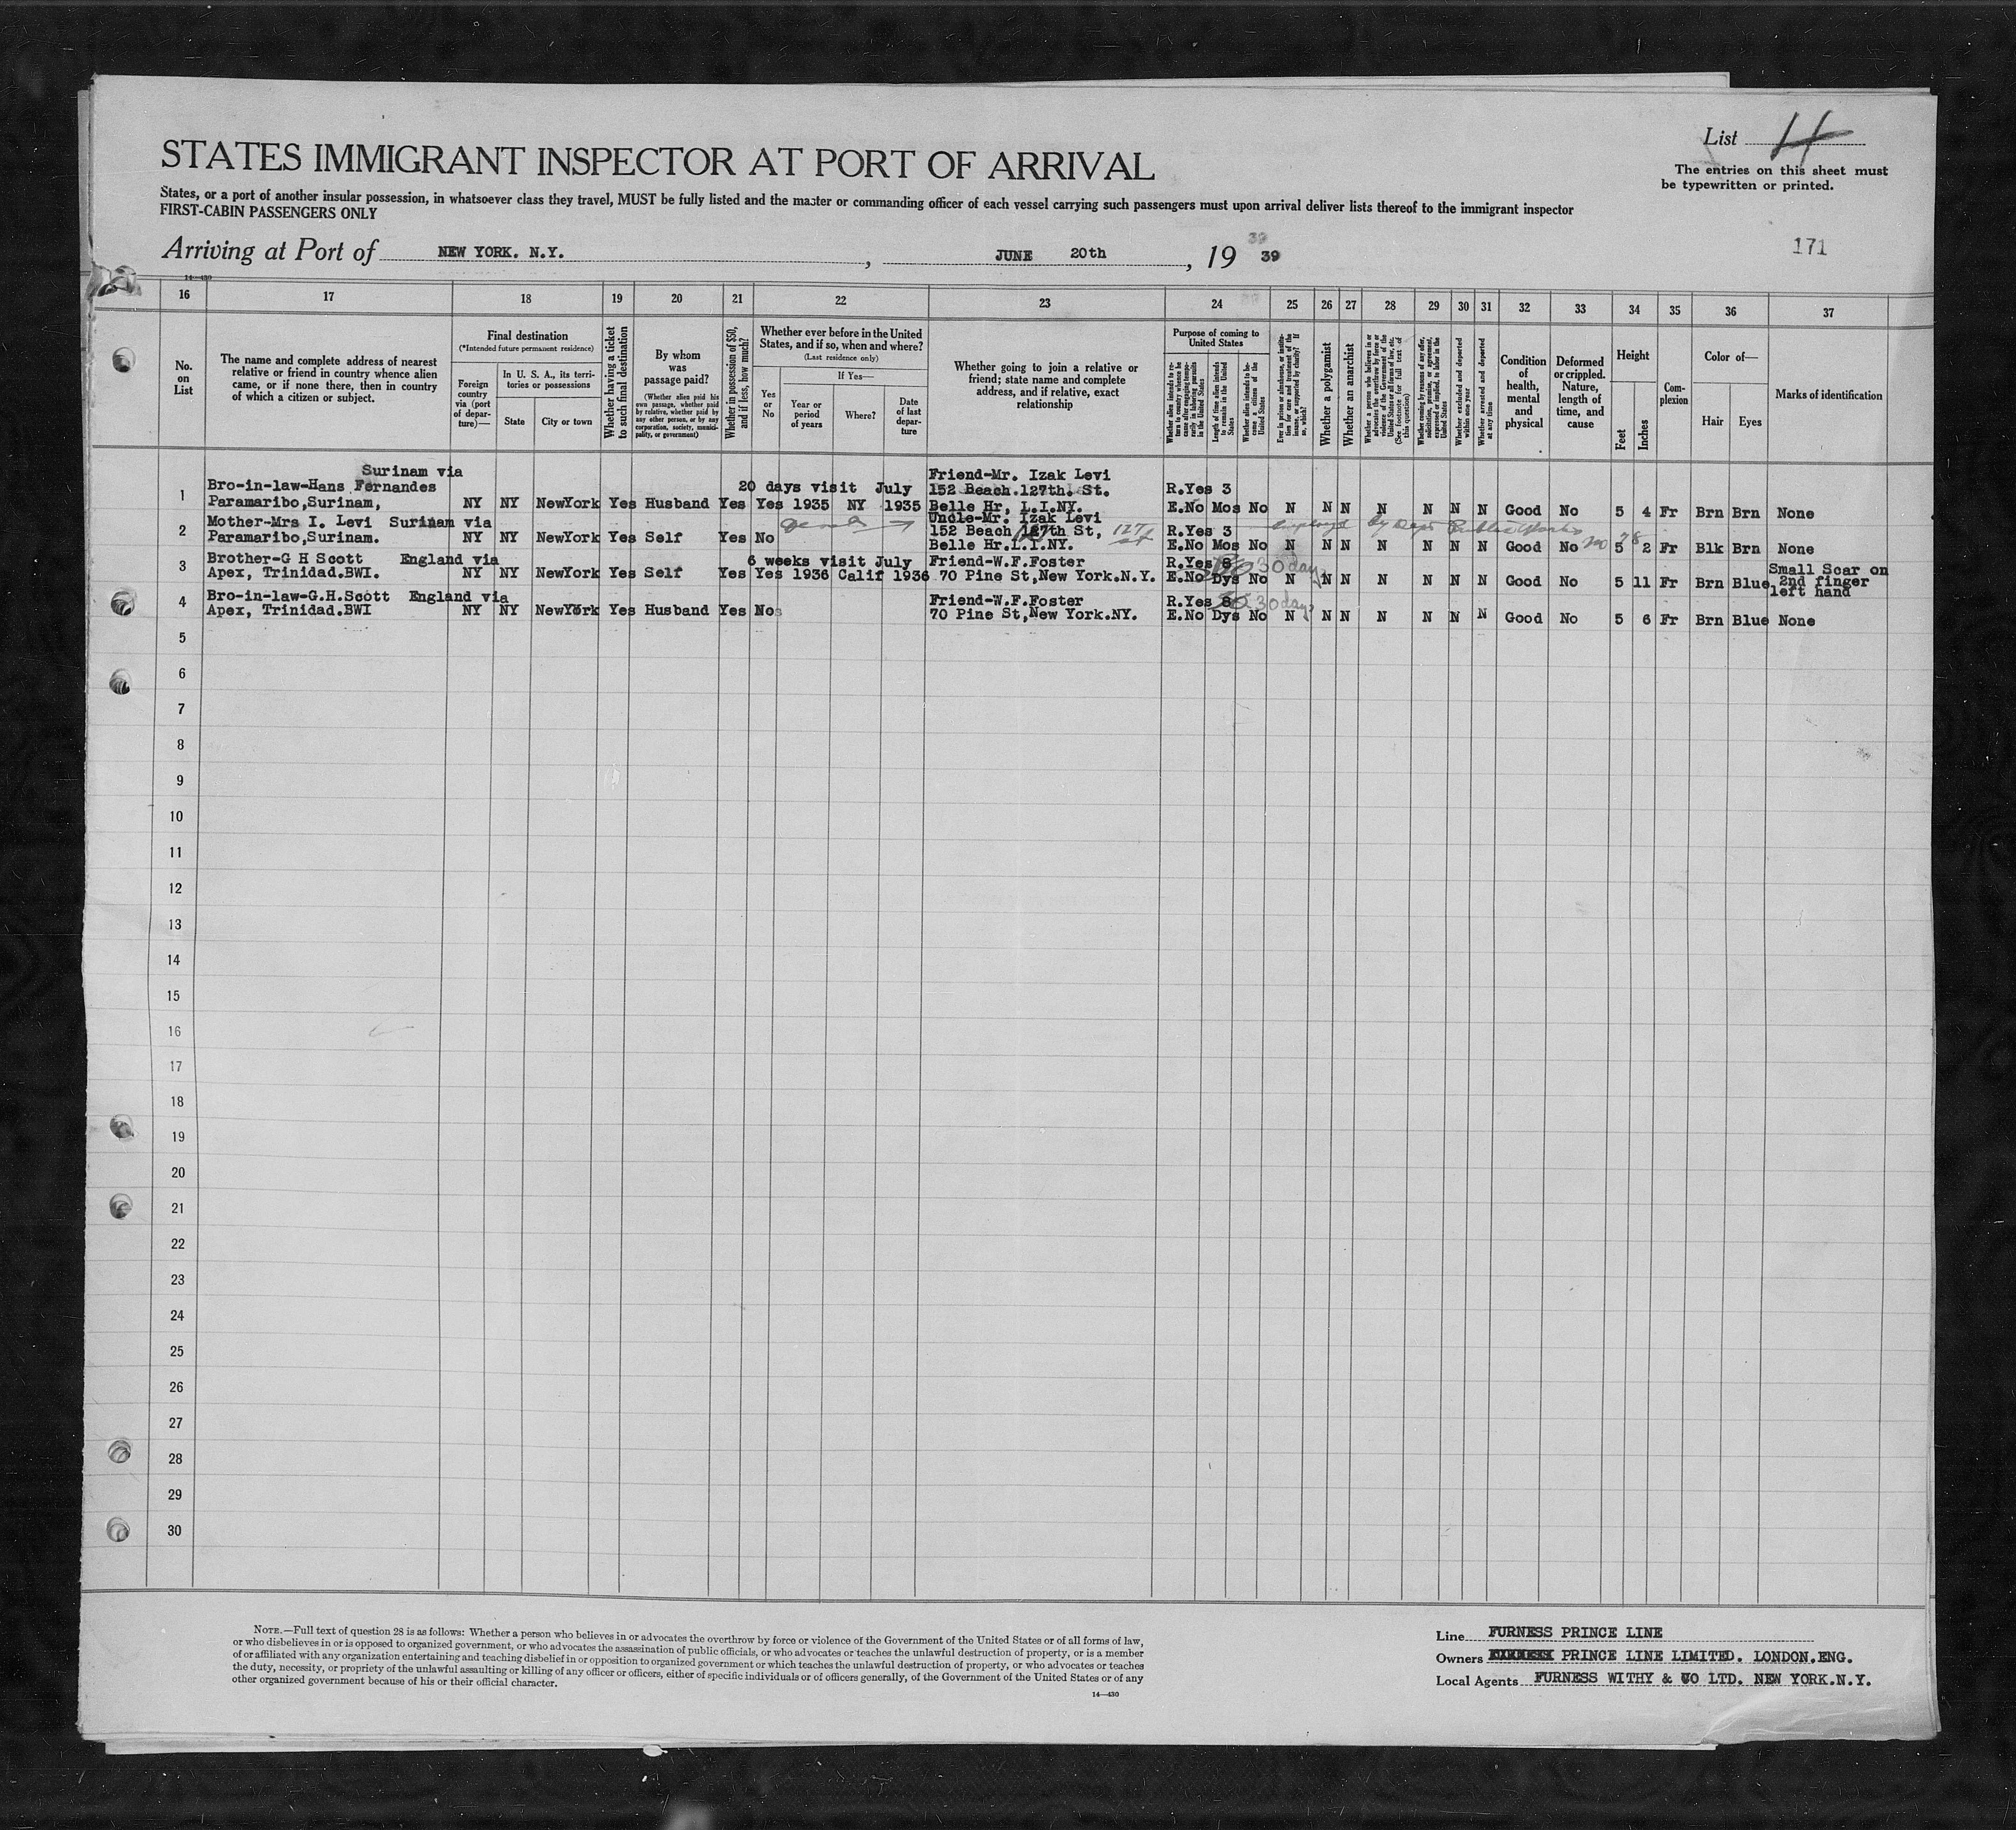 List 4
The entries on this sheet must
be typewritten or printed.
STATES IMMIGRANT INSPECTOR AT PORT OF ARRIVAL
States, or a port of another insular possession, in whatsoever class they travel, MUST be fully listed and the master or commanding officer of each vessel carrying such passengers must upon arrival deliver lists thereof to the immigrant inspector
FIRST-CABIN PASSENGERS ONLY
Arriving at Port of NEW YORK. N.Y. , JUNE 20th , 19 39
39
171
14—430
16 17 18 19 20 21 22 23 24 25 26 27 28 29 30 31 32 33 34 35 36 37
No.
on
List
The name and complete address of nearest
relative or friend in country whence alien
came, or if none there, then in country
of which a citizen or subject.
Final destination
(*Intended future permanent residence)
Foreign
country
via (port
of depar-
ture)—
In U. S. A., its terri-
tories or possessions
State
City or town
Whether having a ticket
to such final destination
By whom
was
passage paid?
(Whether alien paid his
own passage, whether paid
by relative, whether paid by
any other person, or by any
corporation, society, munici-
pality, or government)
Whether in possession of $50,
and if less, how much?
Whether ever before in the United
States, and if so, when and where?
(Last residence only)
Yes
or
No
If Yes—
Year or
period
of years
Where?
Date
of last
depar-
ture
Whether going to join a relative or
friend; state name and complete
address, and if relative, exact
relationship
Purpose of coming to
United States
Whether alien intends to re-
turn to country whence he
came after engaging tempo-
rarily in laboring pursuits
in the United States
Length of time alien intends
to remain in the United
States
Whether alien intends to be-
come a citizen of the
United States
Ever in prison or almshouse, or institu-
tion for care and treatment of the
insane, or supported by charity? If
so, which?
Whether a polygamist
Whether an anarchist
Whether a person who believes in or
advocates the overthrow by force or
violence of the Government of the
United States or all forms of law, etc.
(See footnote for full text of
this question)
Whether coming by reason of any offer,
solicitation, promise, or agreement,
expressed or implied, to labor in the
United States
Whether excluded and deported
within one year
Whether arrested and deported
at any time
Condition
of
health,
mental
and
physical
Deformed
or crippled.
Nature,
length of
time, and
cause
Height
Feet
Inches
Com-
plexion
Color of—
Hair
Eyes
Marks of identification
Surinam via
1 Bro-in-law-Hans Fernandes 20 days visit July Friend-Mr. Izak Levi
152 Beach.127th. St. R.Yes 3
Paramaribo,Surinam, NY NY NewYork Yes Husband Yes Yes 1935 NY 1935 Belle Hr, L.I.NY. E.No Mos No N N N N N N N Good No 5 4 Fr Brn Brn None
2 Mother-Mrs I. Levi Surinam via Uncle-Mr. Izak Levi
Paramaribo,Surinam. NY NY NewYork Yes Self Yes No 152 Beach 127th St, 127 st R.Yes 3 employed by Dept Public Works
Belle Hr.L.I.NY. E.No Mos No N N N N N N N Good No 5 2 Fr Blk Brn None
3 Brother-G H Scott England via 6 weeks visit July Friend-W.F.Foster R.Yes 8 30 days Small Scar on
Apex, Trinidad.BWI. NY NY NewYork Yes Self Yes Yes 1936 Calif 1936 70 Pine St,New York.N.Y. E.No Dys No N N N N N N N Good No 5 11 Fr Brn Blue 2nd finger
left hand
4 Bro-in-law-G.H.Scott England via Friend-W.F.Foster R.Yes 8 30 days
Apex, Trinidad.BWI NY NY NewYork Yes Husband Yes No 70 Pine St,New York.NY. E.No Dys No N N N N N N N Good No 5 6 Fr Brn Blue None
5
6
7
8
9
10
11
12
13
14
15
16
17
18
19
20
21
22
23
24
25
26
27
28
29
30
NOTE.—Full text of question 28 is as follows: Whether a person who believes in or advocates the overthrow by force or violence of the Government of the United States or of all forms of law,
or who disbelieves in or is opposed to organized government, or who advocates the assassination of public officials, or who advocates or teaches the unlawful destruction of property, or is a member
of or affiliated with any organization entertaining and teaching disbelief in or opposition to organized government or which teaches the unlawful destruction of property, or who advocates or teaches
the duty, necessity, or propriety of the unlawful assaulting or killing of any officer or officers, either of specific individuals or of officers generally, of the Government of the United States or of any
other organized government because of his or their official character.
14—430
Line FURNESS PRINCE LINE
Owners PRINCE LINE LIMITED. LONDON.ENG.
Local Agents FURNESS WITHY & CO LTD. NEW YORK.N.Y.